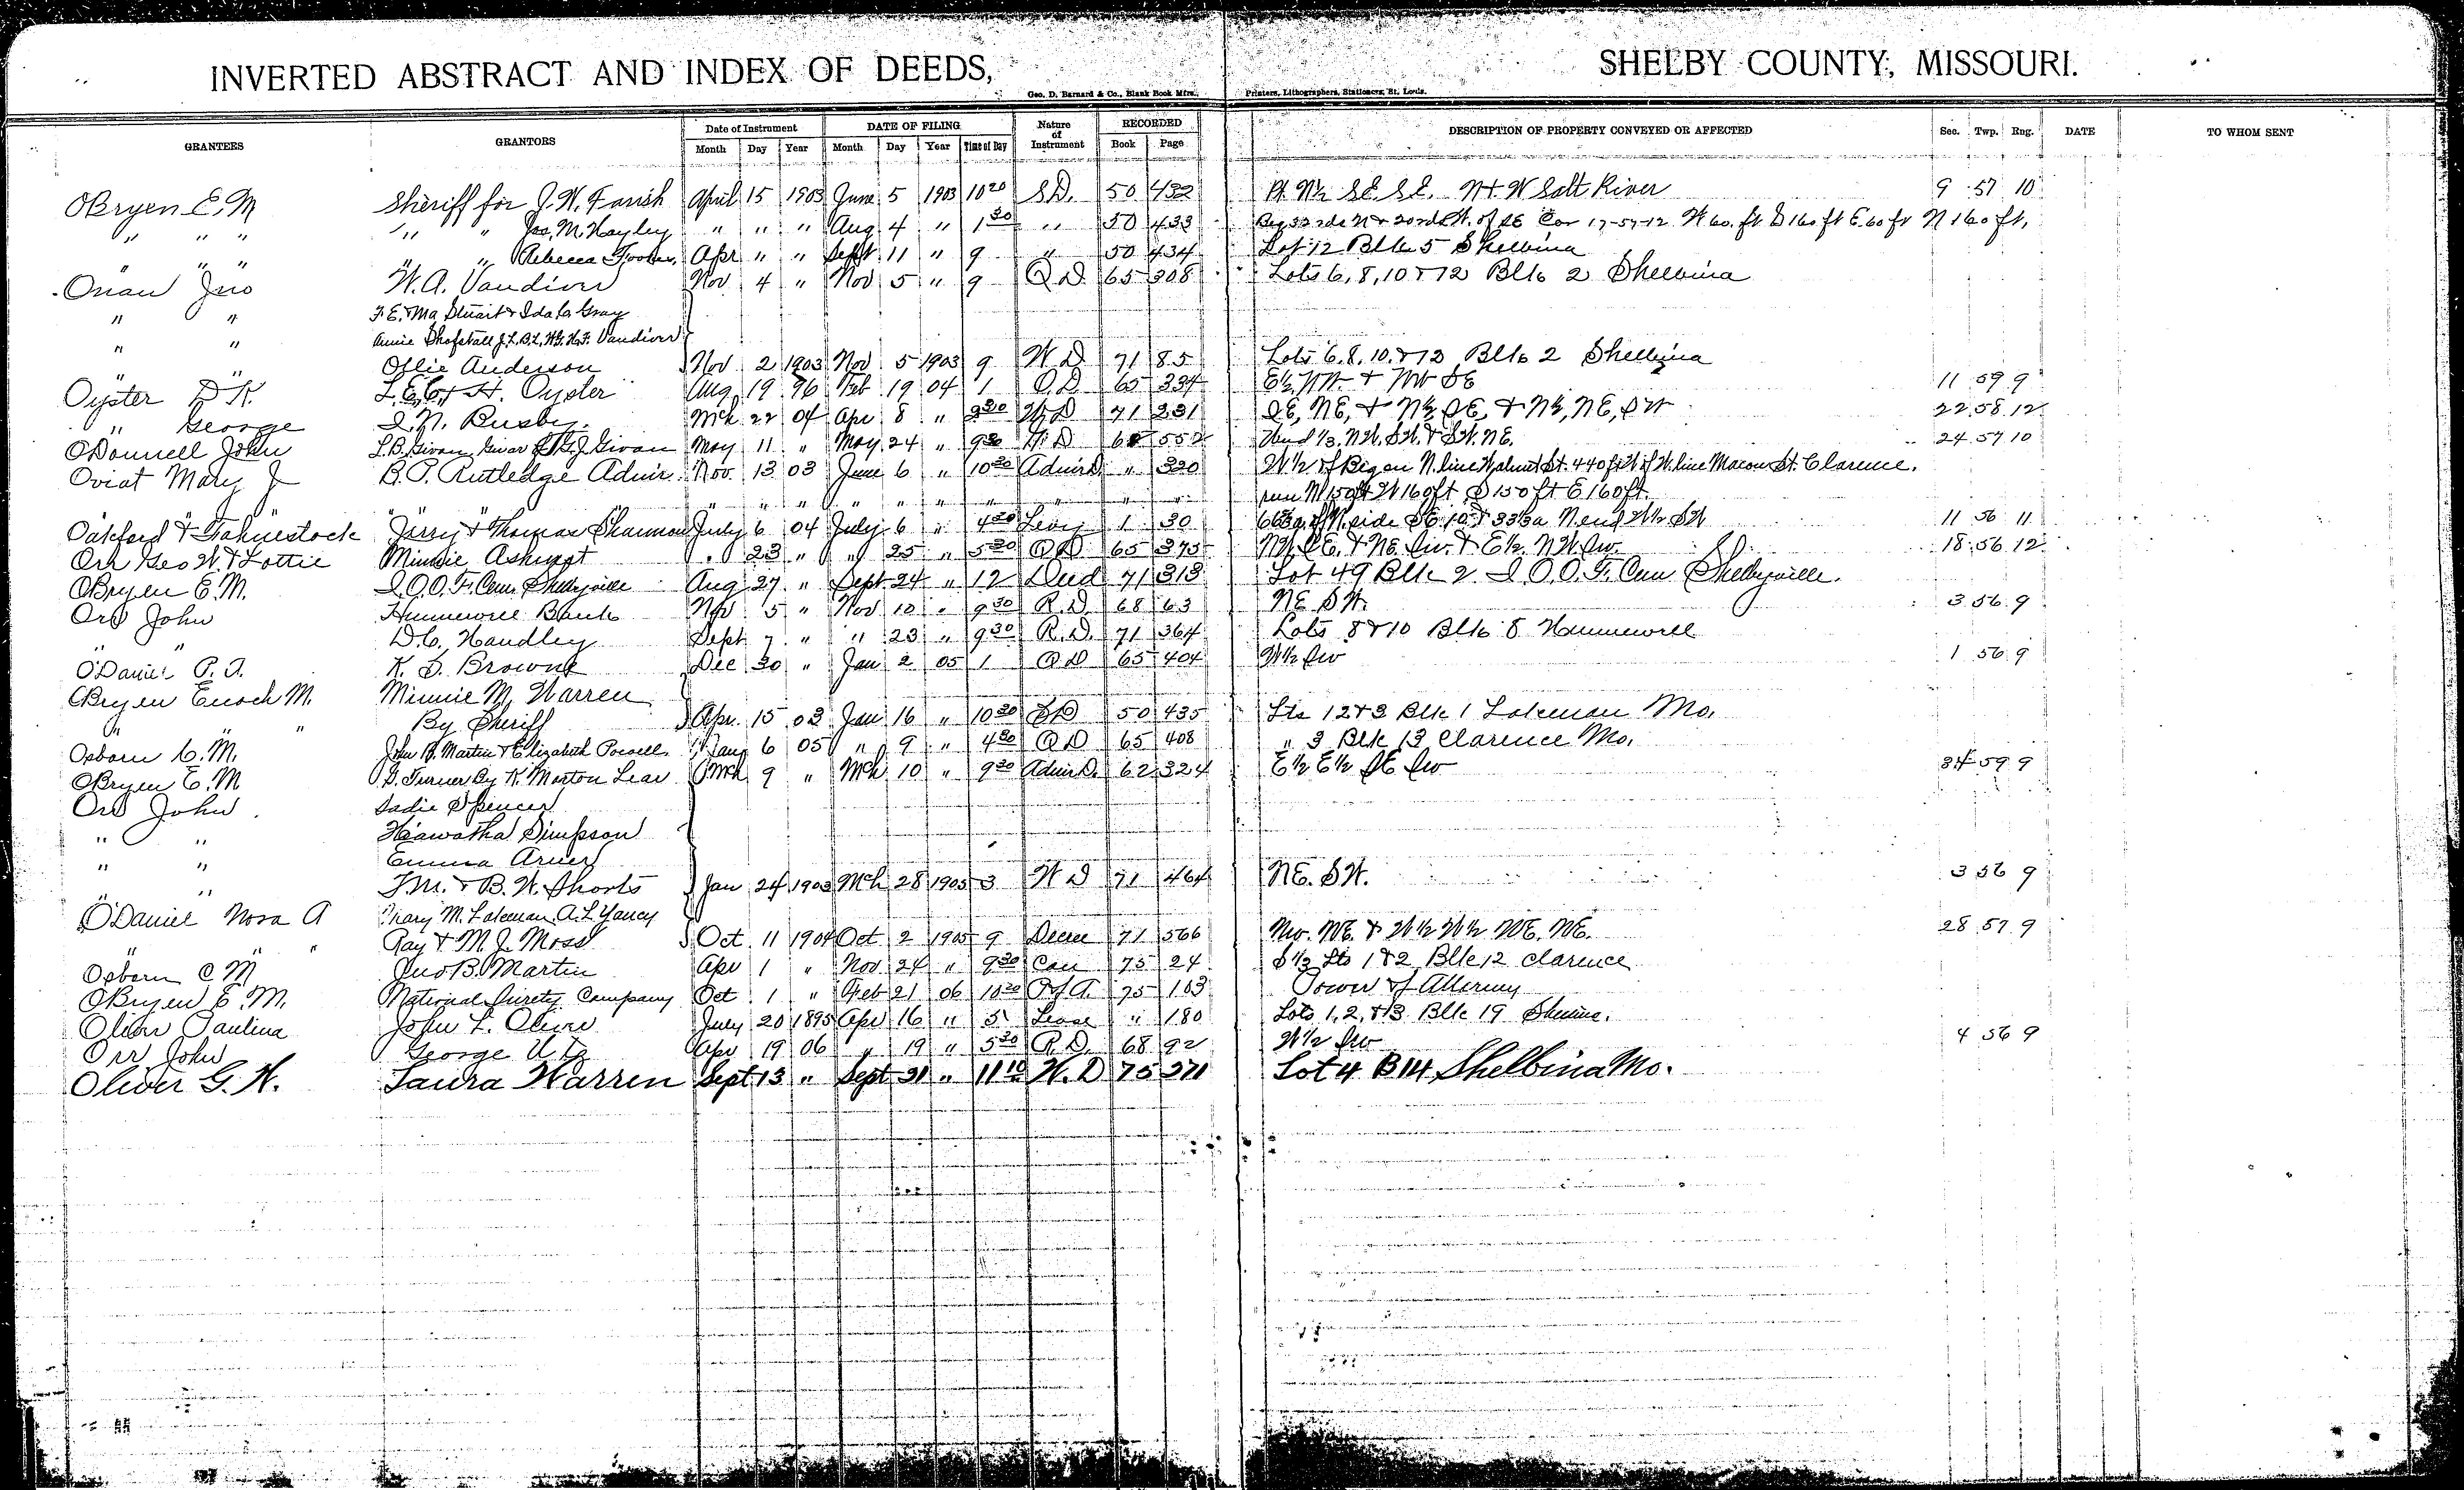 INVERTED ABSTRACT AND INDEX OF DEEDS, SHELBY COUNTY, MISSOURI.
Geo. D. Barnard & Co., Blank Book Mfrs., Printers, Lithographers, Stationers, St. Louis.
GRANTEES GRANTORS Date of Instrument DATE OF FILING Nature of Instrument RECORDED DESCRIPTION OF PROPERTY CONVEYED OR AFFECTED Sec. Twp. Rng. DATE TO WHOM SENT
Month Day Year Month Day Year Time of Day Book Page
OBryen E. M Sheriff for J. W. Farish April 15 1903 June 5 1903 10 20 S.D. 50 432 Pt. N½ SE. SE. N + W Salt River 9 57 10
" " " " " Jas. M. Hayley " " " Aug 4 " 1 30 " 50 433 Cor 17-57-12 W 60. ft S 160 ft E. 60 ft N 160 ft,
" " " " " Rebecca Apr " " Sept 11 " 9 " 50 434 Lot 12 Blk 5 Shelbina
Jno W. A. Vandiver Nov 4 " Nov 5 " 9 Q D. 65 308 Lots 6, 8, 10 & 12 Blk 2 Shelbina
" " F. E. & Ma Stuart & Ida Gray
" " Annie Shofstall J. L. B. L. Vandiver
" " Ollie Anderson Nov 2 1903 Nov 5 1903 9 W D 71 85 Lots 6. 8. 10. & 12 Blk 2 Shelbina
Oyster D K. L. E. C. & H. Oyster Aug 19 96 Feb 19 04 1 Q. D. 65 334 E½ NW. & NW SE 11 59 9
" George I. N. Busby. Mch 22 04 Apr 8 " 9 30 W. D 71 231 SE, NE, & N½ SE, & N½, NE, SW 22 58 12
ODonnell John L. B. Givan & J. Givan May 11 " May 24 " 9 30 W. D 552 Und 1/3. NW. SW. & SW. NE. 24 57 10
Oviat Mary J B. P. Rutledge Admr. Nov. 13 03 June 6 " 10 30 Admr D " 320 W½ of Beg on N. line Walnut St. 440 ft W of W. line Macon St. Clarence.
" " " " " " " " " " " run N 150 ft W 160 ft S 150 ft E 160 ft.
Oakford & Fahnestock Jerry & Thomas Shannon July 6 04 July 6 " 4 30 Levy 1 30 N. side SE 10 & 33⅓a N end W½ SW 11 56 11
Orr Geo W. & Lottie Minnie " 23 " " 25 " 5 30 Q D 65 375 NW. SE. & NE. Sw. & E½. NW Sw. 18 56 12
OBryen E. M. I. O. O. F. Cem. Shelbyville Aug 27 " Sept 24 " 12 Deed 71 313 Lot 49 Blk 2 I. O. O. F. Cem Shelbyville.
Orr John Hunnewell Bank Nov 5 " Nov 12 " 9 30 R. D. 68 63 NE SW. 3 56 9
" " D. C. Handley Sept 7 " " 23 " 9 30 R. D. 71 364 Lots 8 & 10 Blk 8 Hunnewell
ODaniel P. A. K. S. Browne Dec 30 " Jan 2 05 1 Q D 65 404 W½ Sw 1 56 9
OBryen Enoch M. Minnie M. Warren
" " " By Sheriff Apr. 15 03 Jan 16 " 10 30 S D 50 435 Lts 1 2 & 3 Blk 1 Lakenan Mo.
Osborn C. M. John B. Martin & Elizabeth Powell Jany 6 05 " 9 " 4 30 Q D 65 408 " 3 Blk 13 Clarence Mo.
OBryen E. M Turner By K. Morton Lear Mch 9 " Mch 10 " 9 30 Admr D. 62 324 E½ E½ SE Sw 34 59 9
Orr John. Sadie Spencer
" " Hiawatha Simpson
" " Emma
" " T. M. & B. W. Shorts Jan 24 1903 Mch 28 1905 3 W D 71 464 NE. SW. 3 56 9
ODaniel Nora A Mary M. Lakenan A. L. Yancy
" " " Ray & M. J. Moss Oct. 11 1904 Oct 2 1905 9 Decree 71 566 Nw. NE. & W½ W½ NE. NE. 28 57 9
Osborn C M Jno B. Martin Apr 1 " Nov 24 " 9 30 Con 75 24 S⅓ Lts 1 & 2 Blk 12 Clarence
OBryen E. M. National Surety Company Oct 1 " Feb 21 06 10 30 P of A. 75 103 Power of Attorney
Oliver Paulina John L. Oliver July 20 1895 Apr 16 " 5 Lease " 180 Lots 1, 2, & 3 Blk 19
Orr John George Utz Apr 19 06 " 19 " 5 30 R. D. 68 92 W½ Sw 4 56 9
Oliver G. W. Laura Warren Sept 13 " Sept 21 " 11 10 W. D 75 371 Lot 4 B 14 Shelbina Mo.